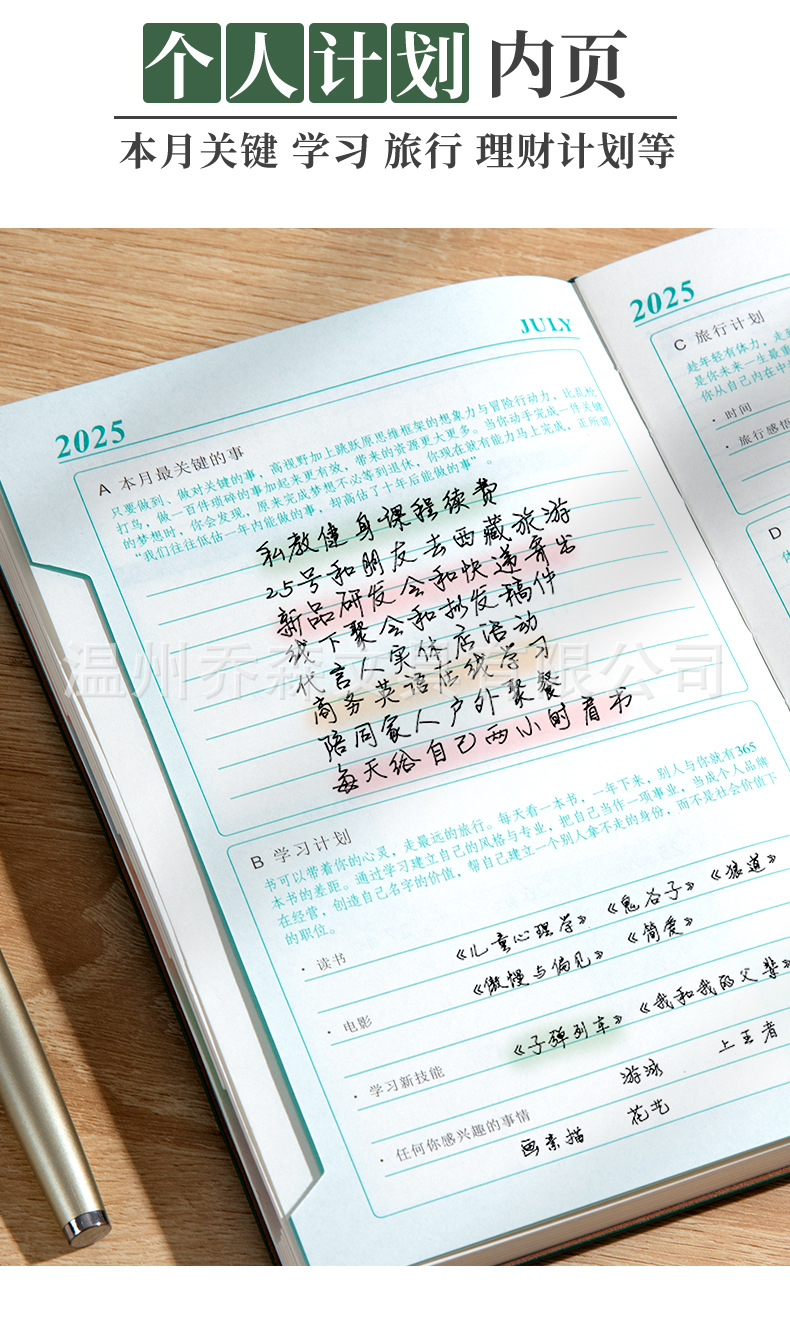 个人计划 内页
本月关键 学习 旅行 理财计划等
2025
JULY
A 本月最关键的事
只要做到、做对关键的事,高视野加上跳跃原思维框架的想象力与冒险行动力,比乱枪
打鸟,做一百件琐碎的事加起来更有效,带来的资源更大更多。当你动手完成一件关键
的梦想时,你会发现,原来完成梦想不必等到退休,你现在就有能力马上完成,正所谓
“我们往往低估一年内能做的事,却高估了十年后能做的事”。
私教健身课程续费
25号和朋友去西藏旅游
新品研发会和快递寄出
线下聚会和拟发稿件
代言人实体店活动
商务英语在线学习
陪同家人户外聚餐
每天给自己两小时看书
温州乔森文具有限公司
B 学习计划
书可以带着你的心灵,走最远的旅行。每天看一本书,一年下来,别人与你就有365
本书的差距。通过学习建立自己的风格与专业,把自己当作一项事业,当成个人品牌
在经营,创造自己名字的价值,帮自己建立一个别人拿不走的身份,而不是社会价值下
的职位。
· 读书
《儿童心理学》《鬼谷子》《狼道》
《傲慢与偏见》《简爱》
· 电影
《子弹列车》《我和我的父辈》
· 学习新技能
游泳 上王者
· 任何你感兴趣的事情
画素描 花艺
2025
C 旅行计划
趁年轻有体力,走
是你未来一生最重
你从自己内在中
· 时间
· 旅行感悟
D